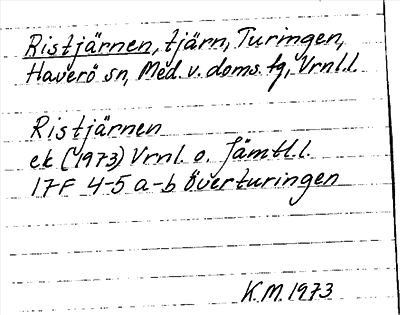 Ristjärnen, tjärn, Turingen,
Haverö sn, Med. v. doms. tg, Vrnl.l.
Ristjärnen
ek (1973) Vrnl. o. Jämtl.l.
17F 4-5 a-b Överturingen
K.M. 1973